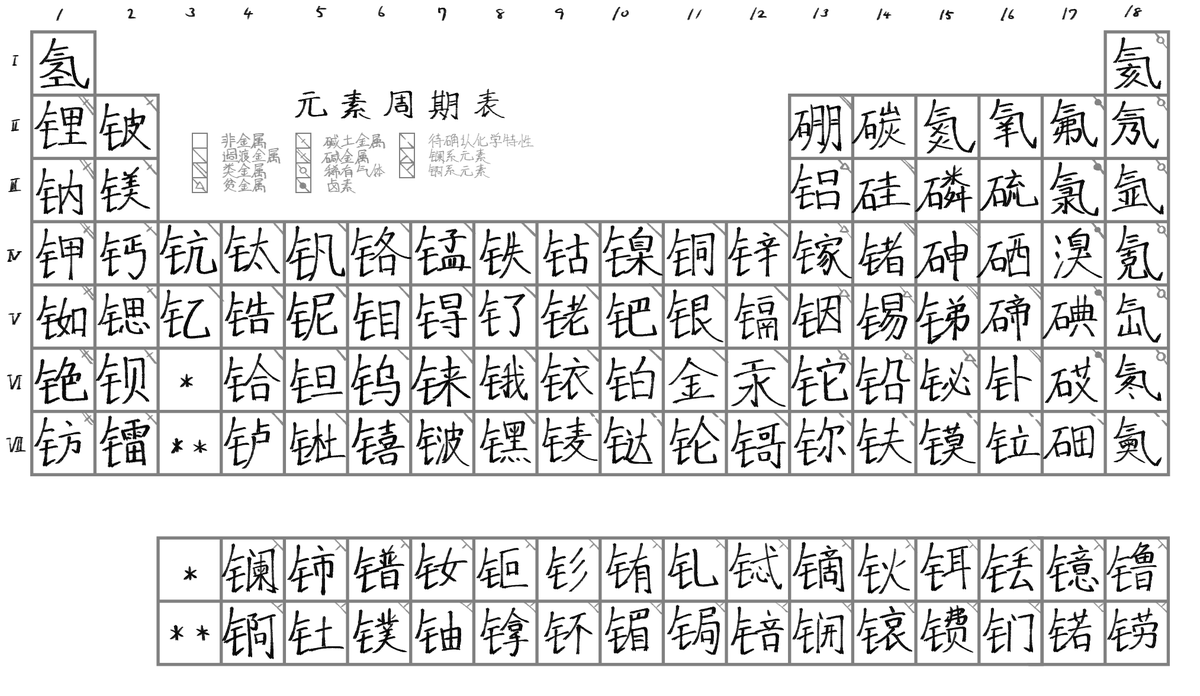 1 2 3 4 5 6 7 8 9 10 11 12 13 14 15 16 17 18
Ⅰ 氢 氦
Ⅱ 锂 铍 硼 碳 氮 氧 氟 氖
元素周期表
非金属 碱土金属 待确认化学特性
过渡金属 碱金属 镧系元素
类金属 稀有气体 锕系元素
贫金属 卤素
Ⅲ 钠 镁 铝 硅 磷 硫 氯 氩
Ⅳ 钾 钙 钪 钛 钒 铬 锰 铁 钴 镍 铜 锌 镓 锗 砷 硒 溴 氪
Ⅴ 铷 锶 钇 锆 铌 钼 锝 钌 铑 钯 银 镉 铟 锡 锑 碲 碘 氙
Ⅵ 铯 钡 * 铪 钽 钨 铼 锇 铱 铂 金 汞 铊 铅 铋 钋 砹 氡
Ⅶ 钫 镭 ** 𬬻 𬭊 𬭳 𬭛 𬭶 鿏 𫟼 𬬭 鿔 鿭 𫓧 镆 𫟷 鿬 鿫
* 镧 铈 镨 钕 钷 钐 铕 钆 铽 镝 钬 铒 铥 镱 镥
** 锕 钍 镤 铀 镎 钚 镅 锔 锫 锎 锿 镄 钔 锘 铹